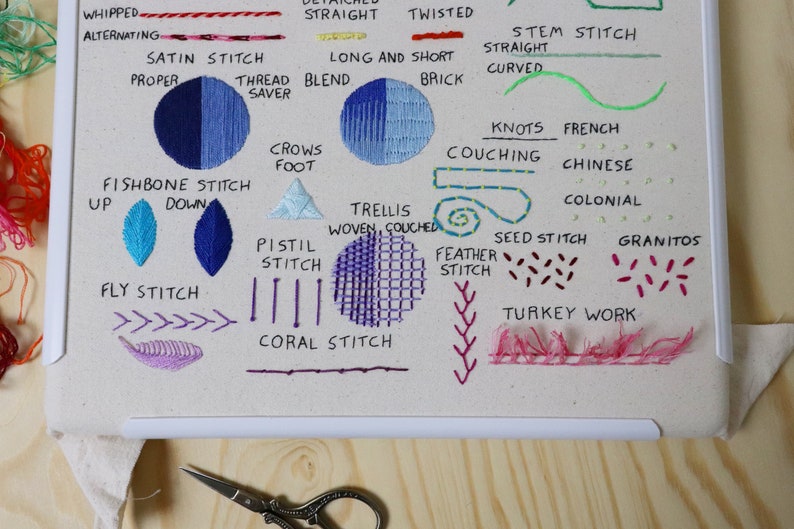 DETACHED
WHIPPED STRAIGHT TWISTED
ALTERNATING
STEM STITCH
STRAIGHT
CURVED
SATIN STITCH
PROPER THREAD
SAVER
LONG AND SHORT
BLEND BRICK
KNOTS FRENCH
CHINESE
COLONIAL
CROWS
FOOT
COUCHING
FISHBONE STITCH
UP DOWN
TRELLIS
WOVEN COUCHED
PISTIL
STITCH
FEATHER
STITCH
SEED STITCH
GRANITOS
FLY STITCH
CORAL STITCH
TURKEY WORK